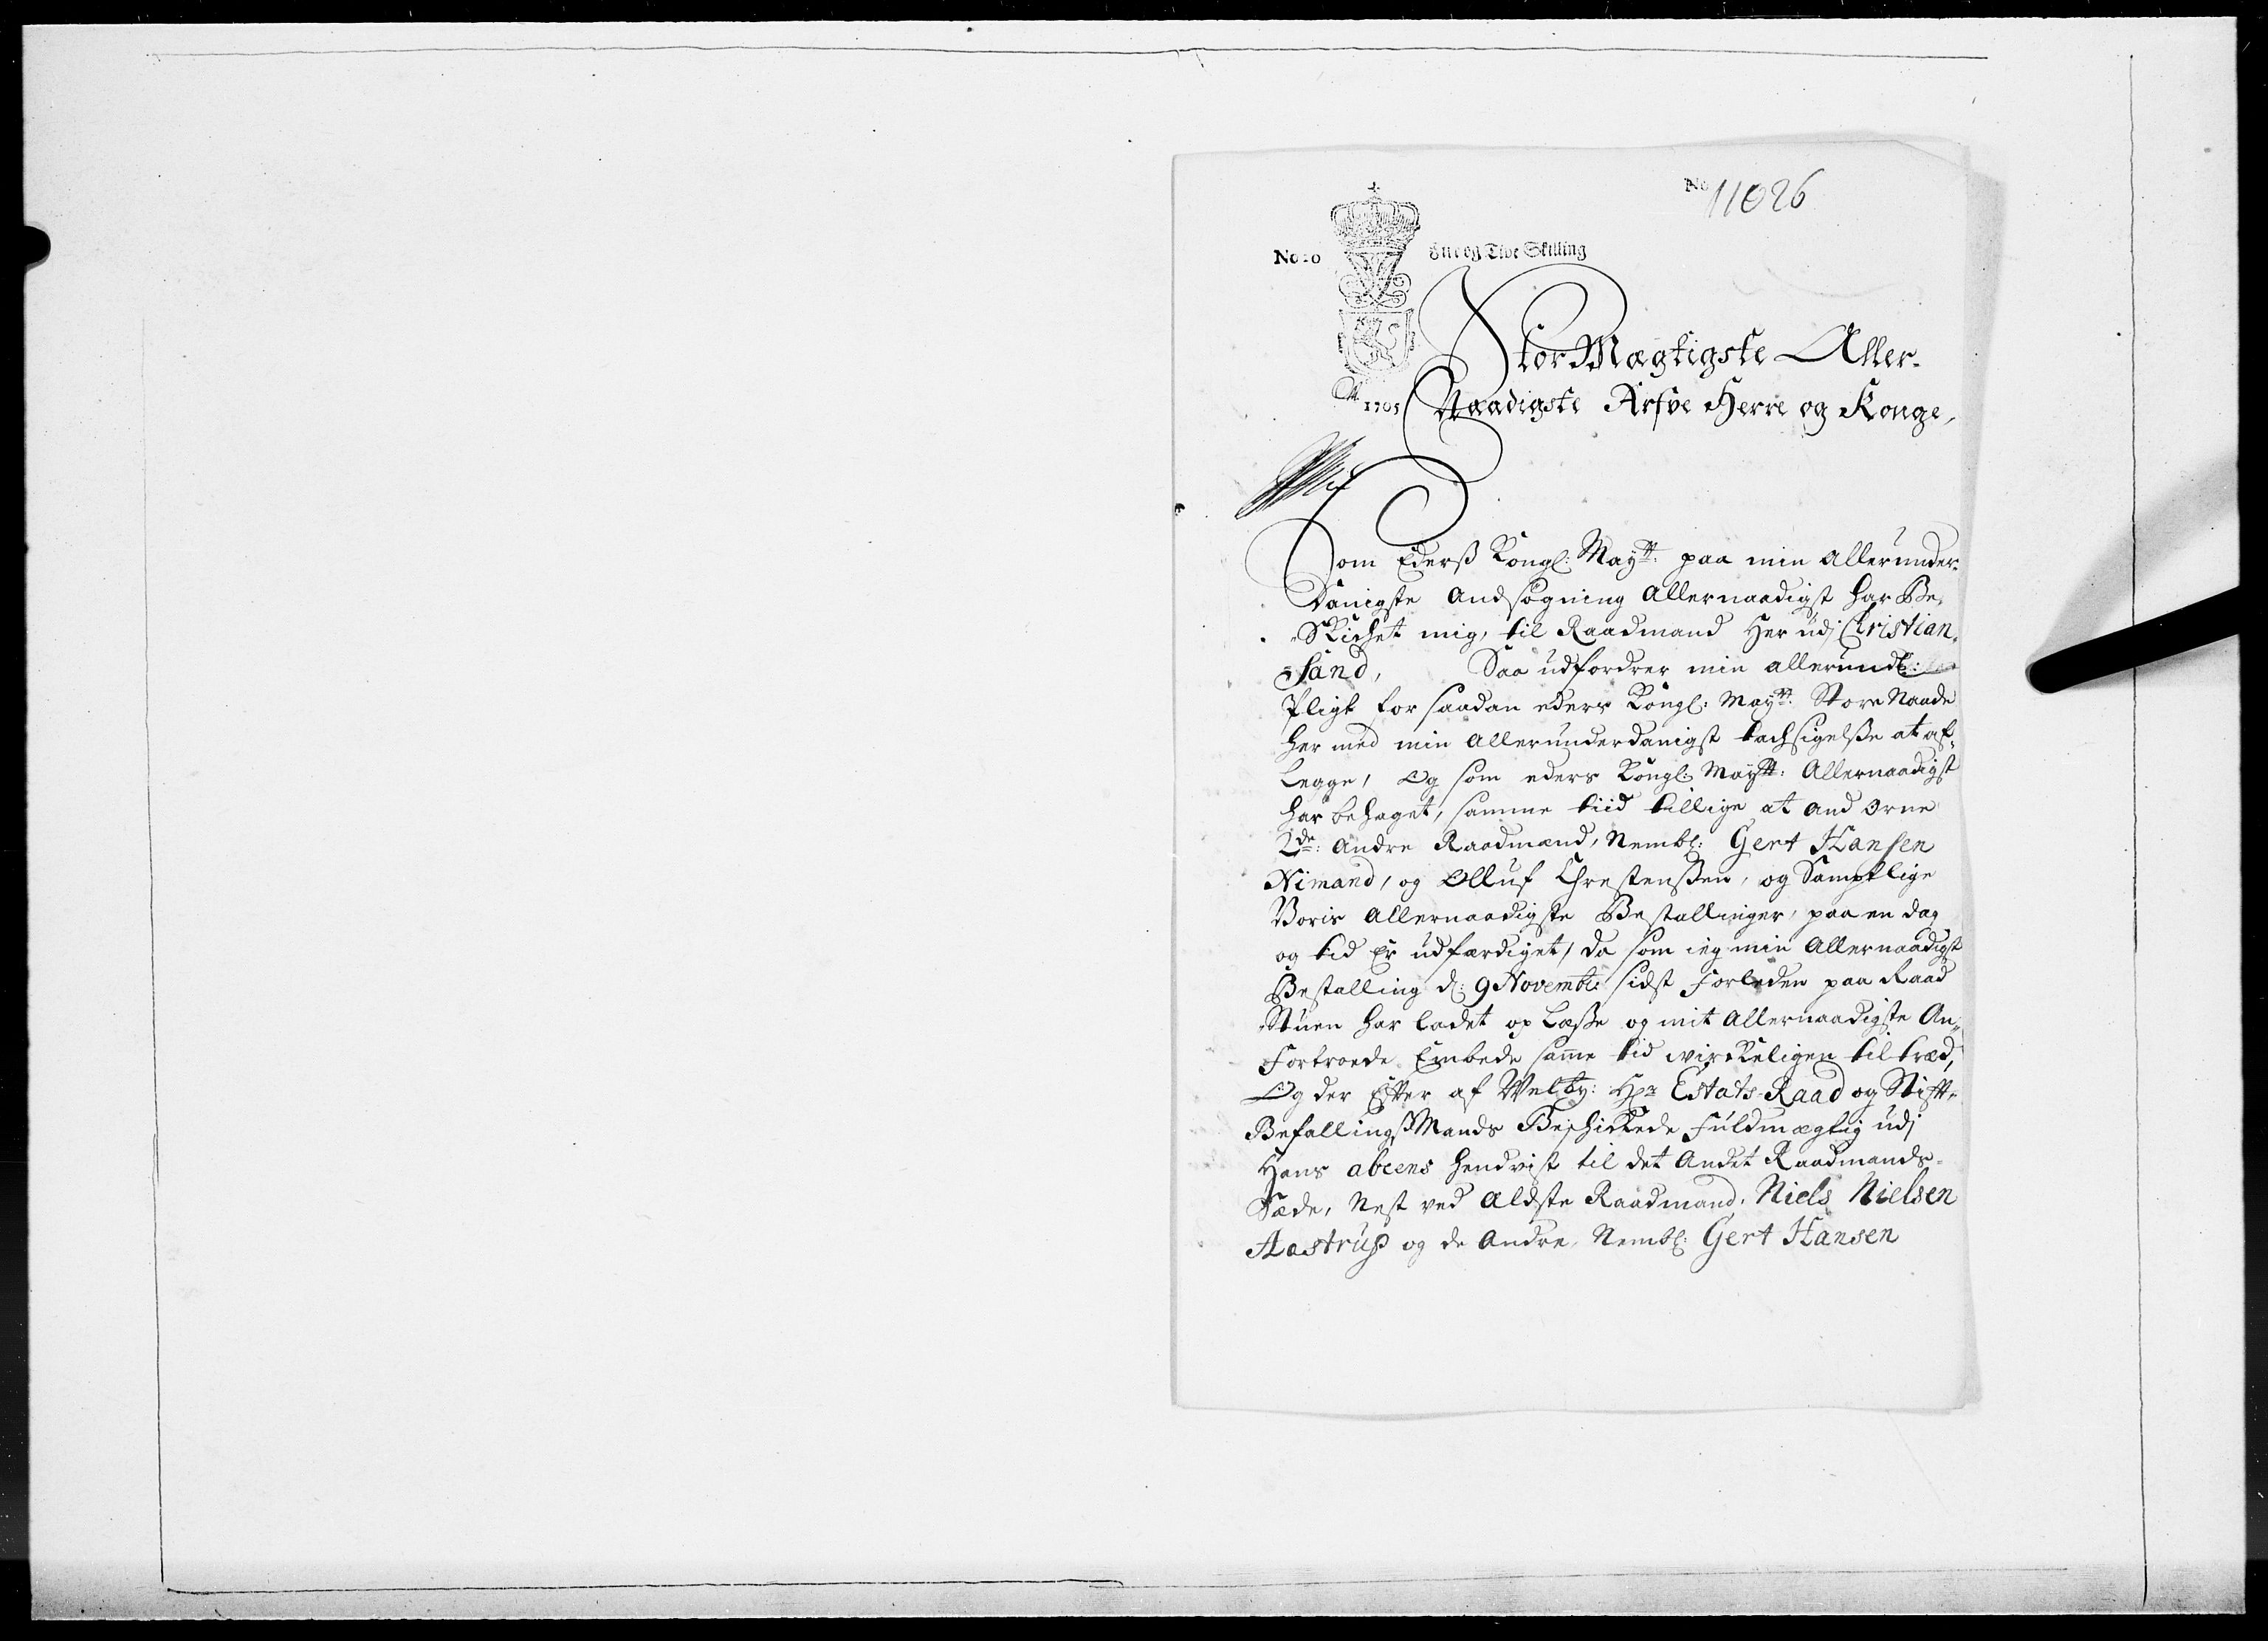 No 11026
No 20 En og Tive Skilling
StorMægtigste Aller-
1705 Naadigste Arfve Herre og Konge,
Som Ederß Kongl: Maytt: paa min Allerunder-
danigste Andsøgning Allernaadigst har Be-
Skichet mig, til Raadmand her udj Christian-
Sand, Saa udfordrer min allerund:
Pligt for saadan eders Kongl: Maytt: Store Naade
her med min Allerunderdanigst tachsigelße at af-
legge, Og som eders Kongl: Maytt: Allernaadigst
har behaget, samme tiid tillige at and orne
2de: Andre Raadmænd, Nembl: Gert Hansen
Nimand, og Olluf Chrestensßen, og Samptlige
Voris Allernaadigste Bestallinger, paa en dag
og tid Er udfærdiget, da som ieg min Allernaadigst
Bestalling d: 9 Novembr: sidst forleden paa Raad
Stuen har ladet op læße og mit Allernaadigste An-
fortroede Embede same tid wirckeligen til træd,
Og der Efter af Welby: Hr Estats-Raad og Stift-
BefallingsMands Beschickede fuldmægtig udj
Hans abcens henvist til det Andet Raadmands-
Sæde, Nest ved Eldste Raadmand, Niels Nielsen
Aastrup og de Andre, Nembl: Gert Hansen